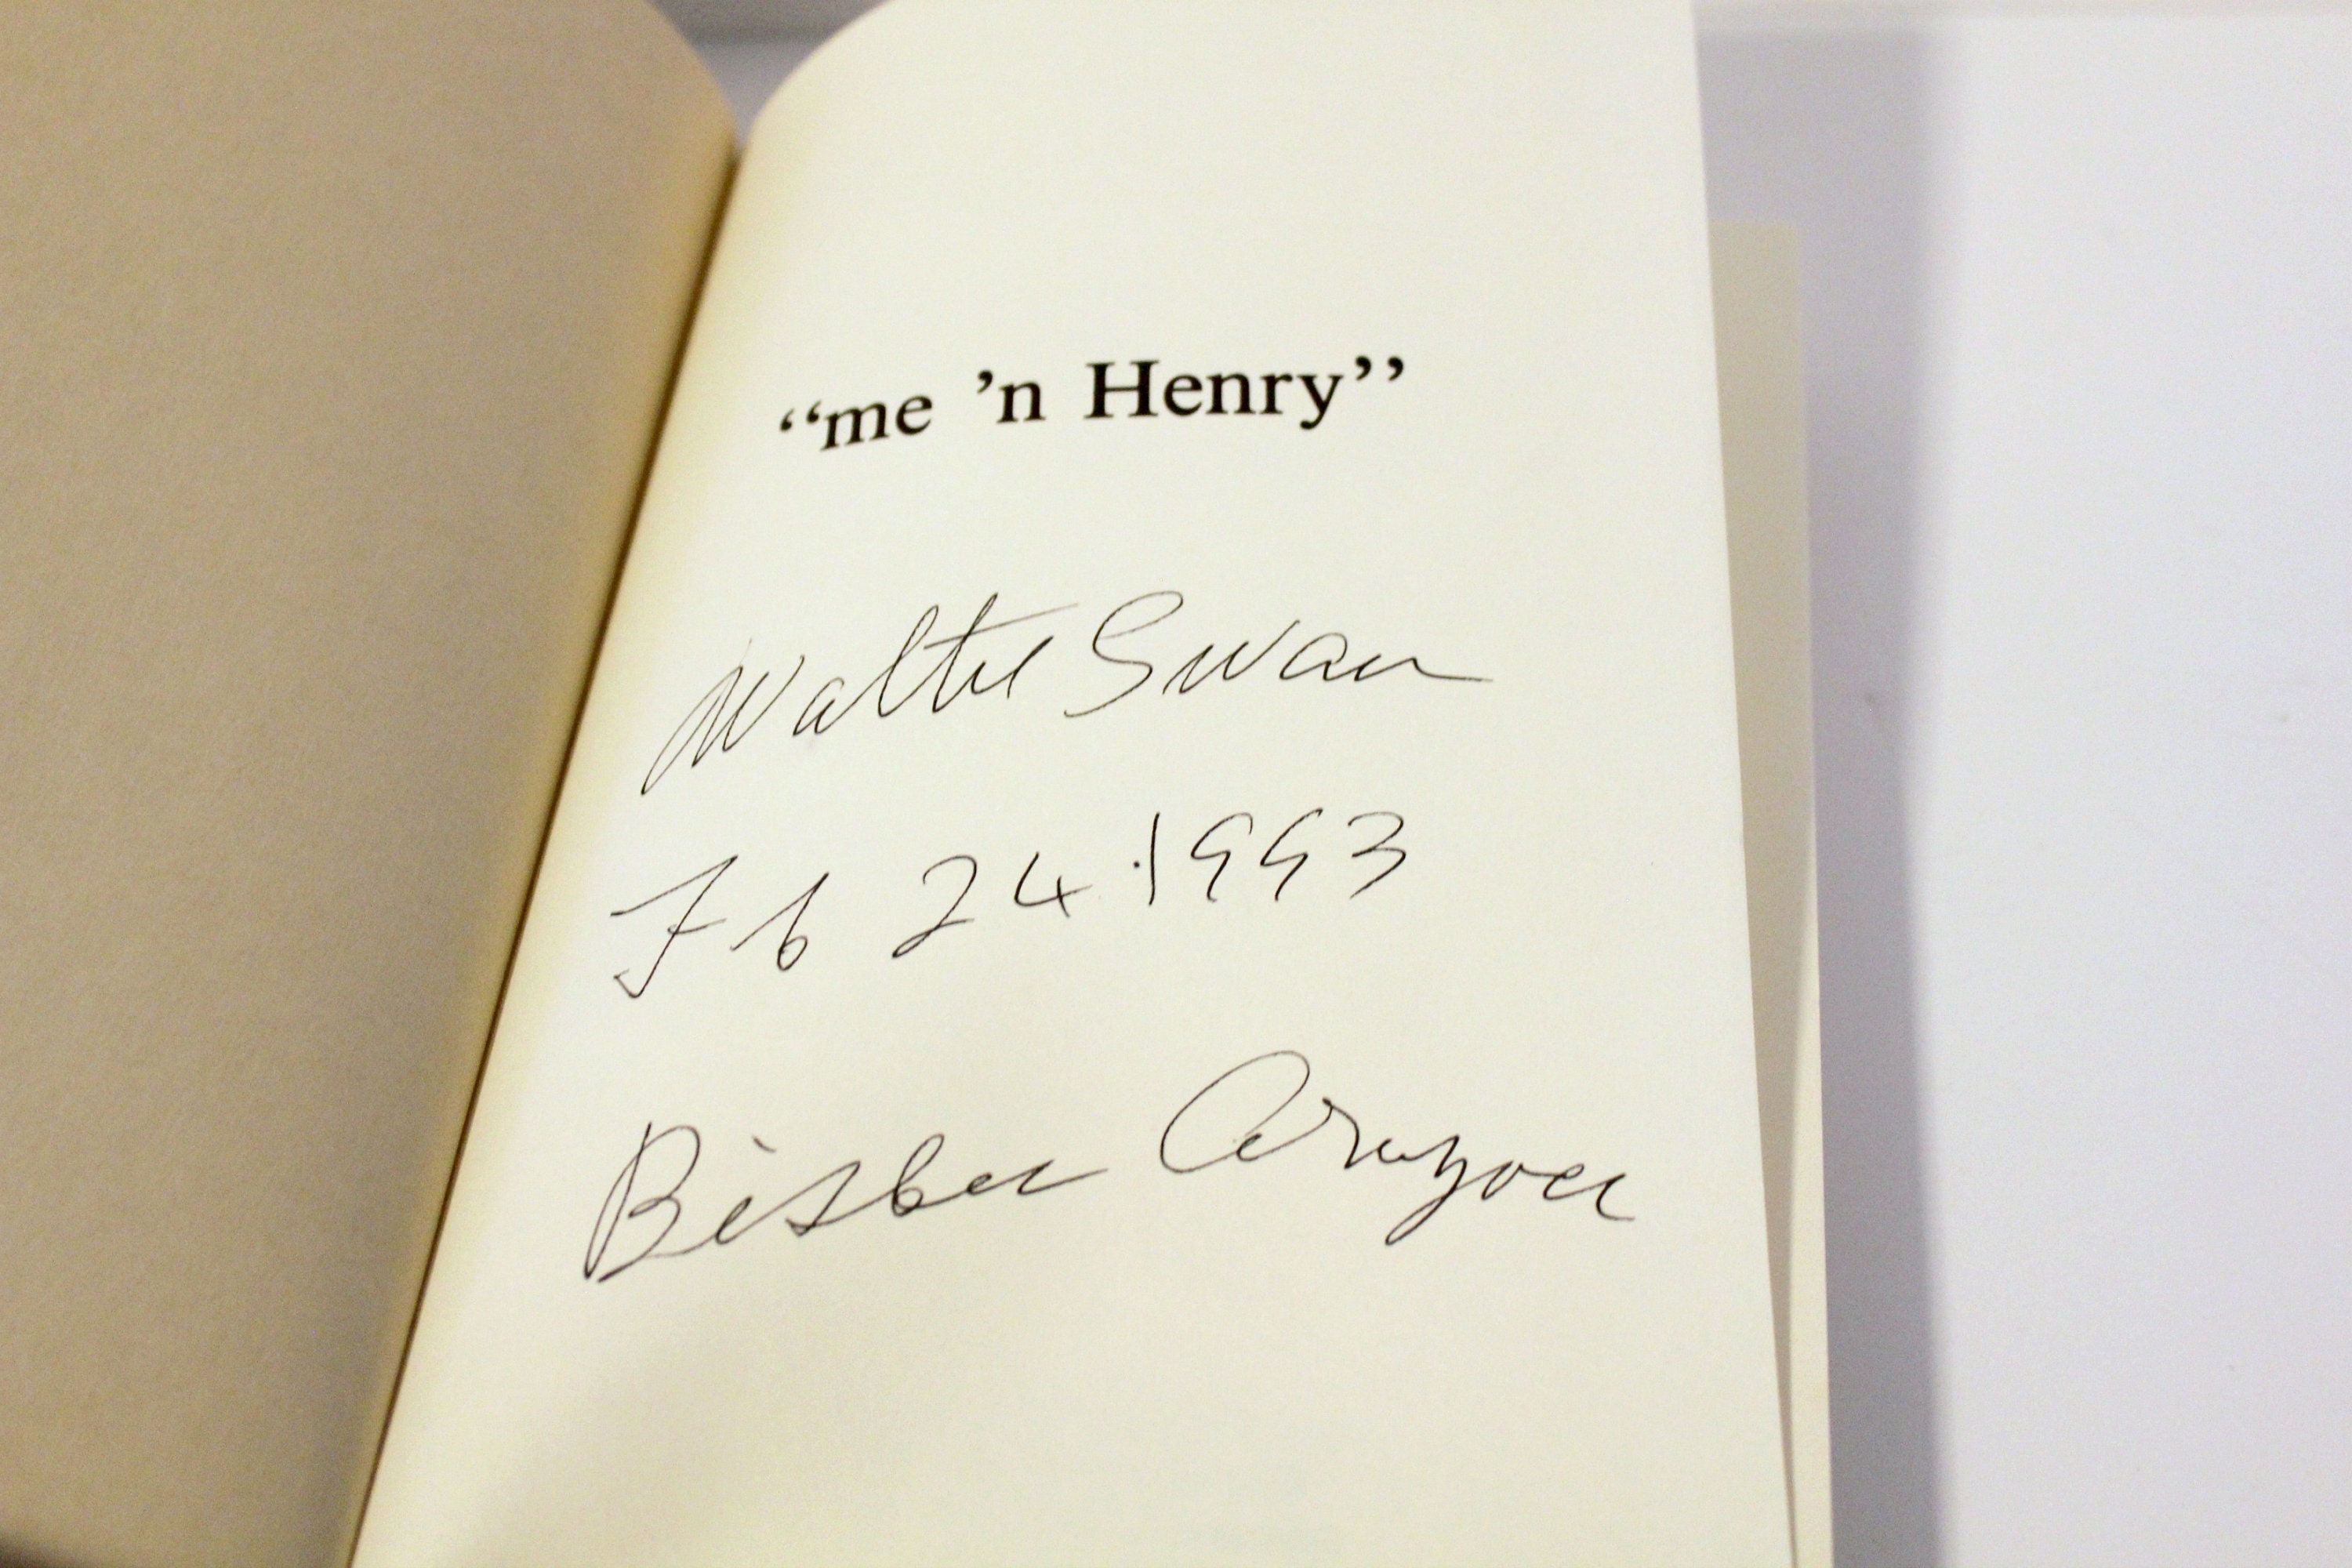 “me ’n Henry”
Walter Swan
Feb 24 1993
Bisbee Arizona